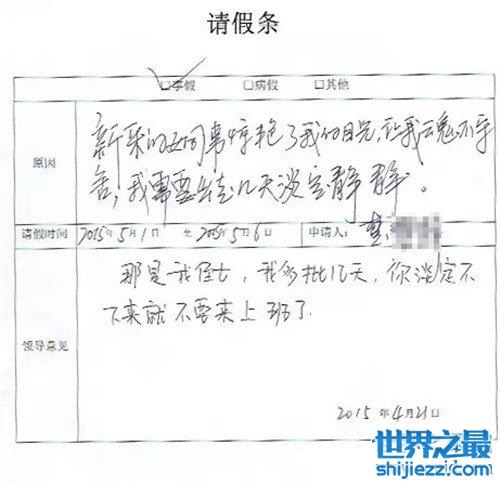 请假条
☑事假 □病假 □其他
原因
新来的女同事惊艳了我的目光,让我云鬼不守
舍,我需要出去几天淡定静静。
请假时间 2015年5月1日 至 2015年5月6日 申请人:
那是我侄女,我多批几天,你淡定不
下来就不要来上班了
领导意见
2015年4月21日
世界之最
shijiezz.com